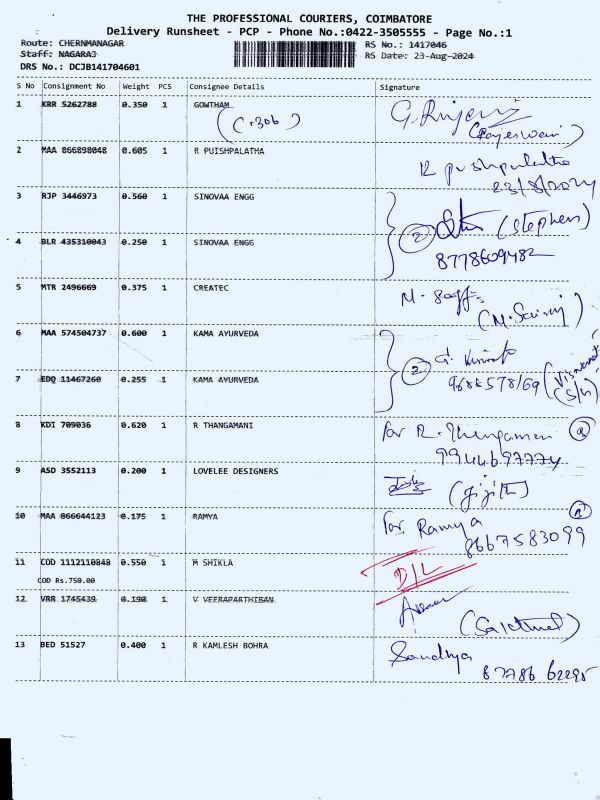 THE PROFESSIONAL COURIERS, COIMBATORE
Delivery Runsheet - PCP - Phone No.:0422-3505555 - Page No.:1
Route: CHERNMANAGAR RS No.: 1417046
Staff: NAGARAJ RS Date: 23-Aug-2024
DRS No.: DCJB141704601
S No Consignment No Weight PCS Consignee Details Signature
1 KRR 5262788 0.350 1 GOWTHAM
(C-306)
(Rajeswari)
2 MAA 866898048 0.605 1 R PUISHPALATHA R pushpalatha
23/8/2024
3 RJP 3446973 0.560 1 SINOVAA ENGG
2 (Stephen)
4 BLR 435310043 0.250 1 SINOVAA ENGG
8778609482
5 MTR 2496669 0.375 1 CREATEC
6 MAA 574504737 0.600 1 KAMA AYURVEDA
2
7 EDQ 11467260 0.255 1 KAMA AYURVEDA
8 KDI 709036 0.620 1 R THANGAMANI for R. Thangamani
9944697774
9 ASD 3552113 0.200 1 LOVELEE DESIGNERS
(Jijith)
10 MAA 866644123 0.175 1 RAMYA for Ramya
8667583099
11 COD 1112110848 0.550 1 M SHIKLA D/L
COD Rs.750.00
12 VRR 1745439 0.190 1 V VEERAPARTHIBAN
13 BED 51527 0.400 1 R KAMLESH BOHRA Sandhya